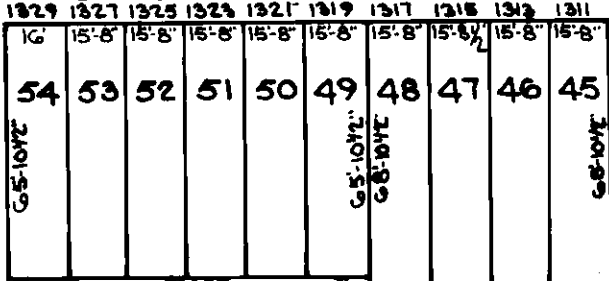 1329 1327 1325 1323 1321 1319 1317 1315 1313 1311
16' 15'-8" 15'-8" 15'-8" 15'-8" 15'-8" 15'-8" 15'-8½ 15'-8" 15'-8"
54 53 52 51 50 49 48 47 46 45
65'-10½" 65'-10½" 68'-10½" 68'-10½"